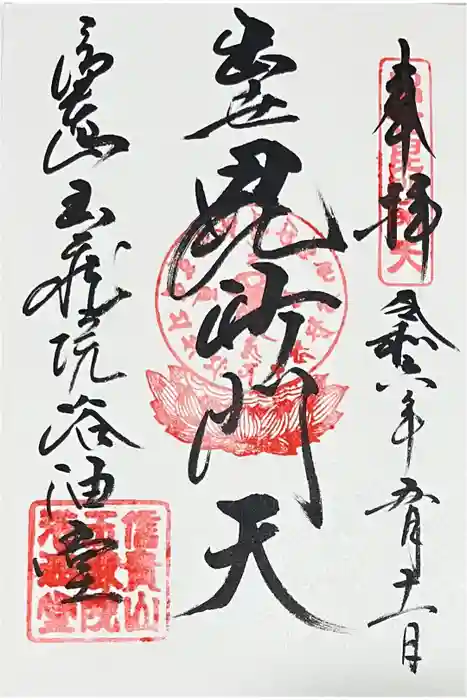 奉拝
令和六年五月十一日
出世毘沙門天
信貴山玉蔵院浴油堂
信貴山
玉蔵院
浴油堂